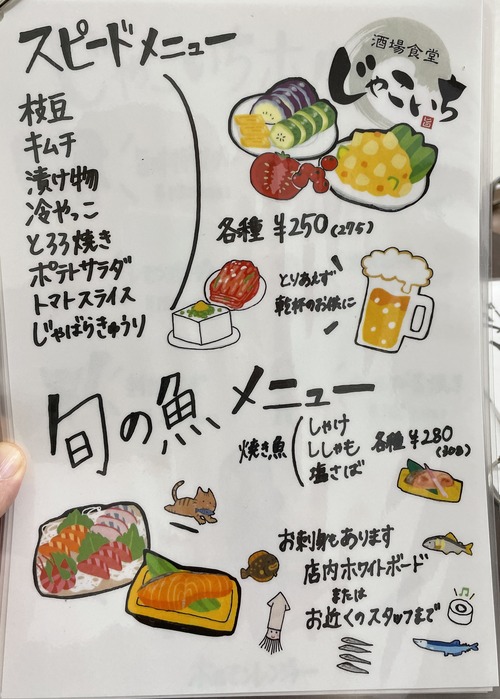 スピードメニュー
酒場食堂
じゃこいち
枝豆
キムチ
漬け物
冷やっこ
とろろ焼き
ポテトサラダ
トマトスライス
じゃばらきゅうり
各種 ¥250(275)
とりあえず
乾杯のお供に
旬の魚メニュー
焼き魚
しゃけ
ししゃも
塩さば
各種 ¥280
(308)
お刺身もあります
店内ホワイトボード
または
お近くのスタッフまで